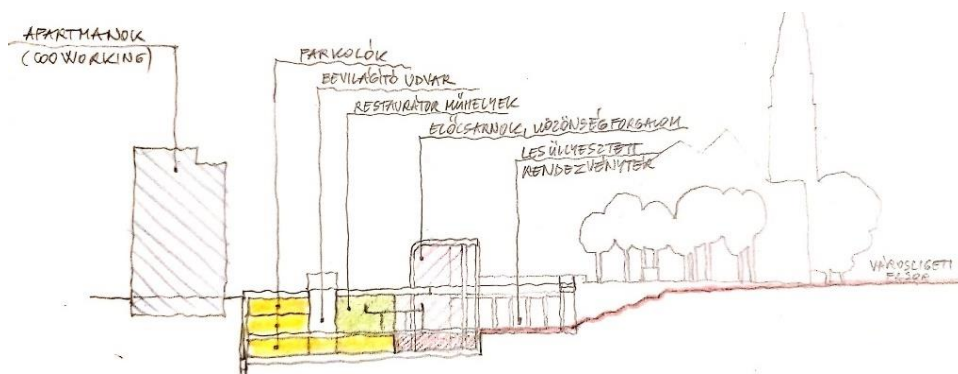 APARTMANOK
(COOWORKING)
PARKOLÓK
BEVILÁGÍTÓ UDVAR
RESTAURÁTOR MŰHELYEK
ELŐCSARNOK, KÖZÖNSÉGFORGALOM
LESÜLLYESZTETT
RENDEZVÉNYTÉR
VÁROSLIGETI
FASOR